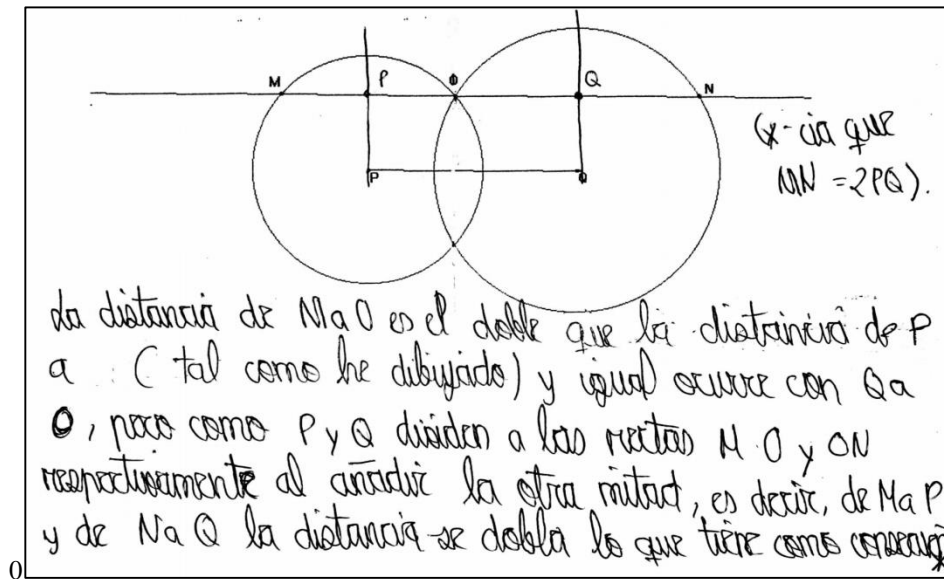 M P O Q N
P Q
(x-cia que
MN = 2PQ).
La distancia de M a O es el doble que la distancia de P
a : (tal como he dibujado) y igual ocurre con Q a
O, pero como P y Q dividen a las rectas M O y ON
respectivamente al añadir la otra mitad, es decir, de M a P
y de N a Q la distancia se dobla lo que tiene como
0